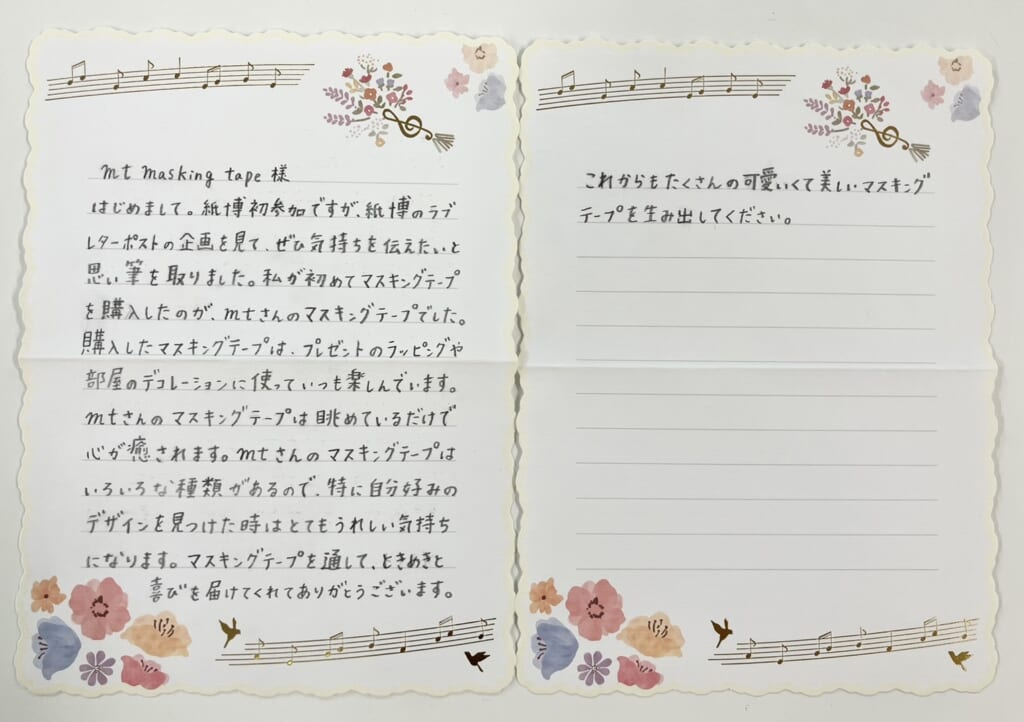 mt masking tape 様
はじめまして。紙博初参加ですが、紙博のラブ
レターポストの企画を見て、ぜひ気持ちを伝えたいと
思い筆を取りました。私が初めてマスキングテープ
を購入したのが、mtさんのマスキングテープでした。
購入したマスキングテープは、プレゼントのラッピングや
部屋のデコレーションに使っていつも楽しんでいます。
mtさんのマスキングテープは眺めているだけで
心が癒されます。mtさんのマスキングテープは
いろいろな種類があるので、特に自分好みの
デザインを見つけた時はとてもうれしい気持ち
になります。マスキングテープを通して、ときめきと
喜びを届けてくれてありがとうございます。
これからもたくさんの可愛いくて美しいマスキング
テープを生み出してください。